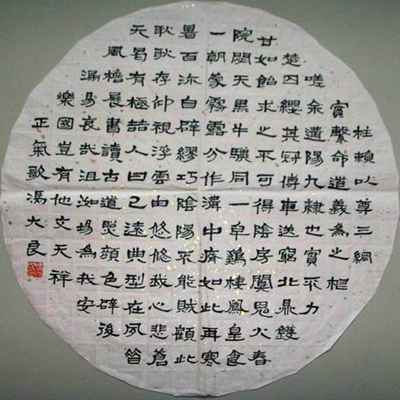 柱賴以尊三綱
實繫命道義為之樞
嗟余遘陽九隸也實不力
楚囚纓其冠傳車送窮北鼎鑊
甘如飴求之不可得陰房闃鬼火春
院閟天黑牛驥同一皁鷄棲鳳皇食
一朝蒙霧露分作溝中瘠如此再寒
暑百沴自辟繆巧陰陽不能賊顧此
耿耿存仰視浮雲白悠悠我心悲蒼
天曷有極喆人日已遠典型在夙
風檐展書讀古道顏色辟後
易哀哉沮洳場為我安
樂國豈有他文天祥
正氣歌馮大良